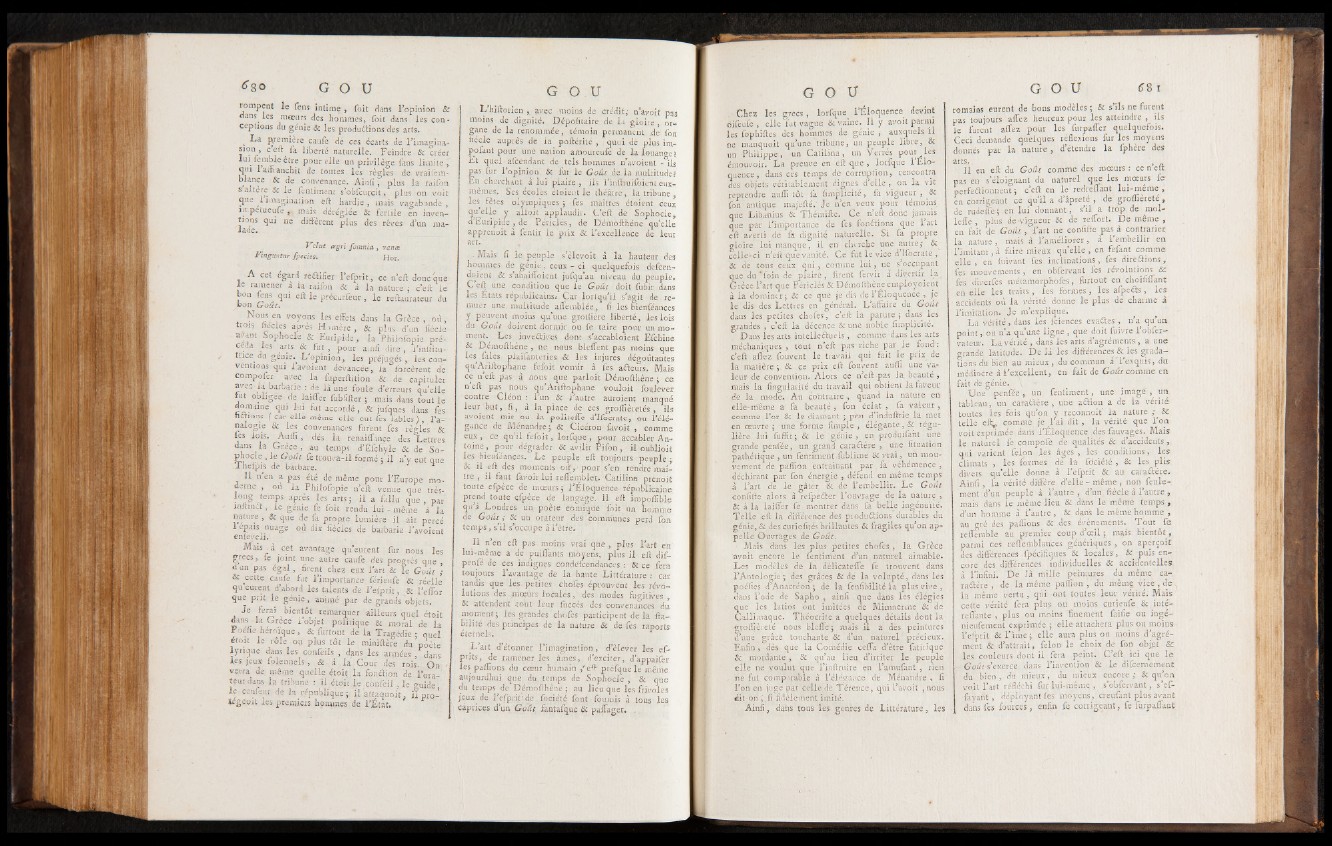 680 G O U
G O U
rompent le sens intime, soit dans l'opinion &
dans les mœurs des hommes, soit dans les con-
ceptions du génie & les productions des arts.
La première cause de ces écarts de l'imagina-
sion, c'est sa liberté naturelle. Feindre & créer
lui semble être pour elle un privilège sans limite,
qui l'affranchit de toutes les règles de vraisem-
blance & de convenance. Ainsi, plus la raison
s'altère & le sentiment s'obscurcit, plus on voit
que l'imagination est hardie, mais vagabonde,
impétueuse, mais déréglée & fertile en inven-
tions qui ne diffèrent plus des rêves d'un ma-
lade.
Velut ægri somnia, vanæ
Fingentur species. Hor.
A cet égard rectifier l'esprit, ce n'est donc que
le ramener à la raison & à la nature; c'est le
bon sens qui est le précurseur, le restaurateur du
bon Goût.
Nous en voyons les effets dans la Grèce, où,
trois siècles après Homère, & plus d'un siècle
avant Sophocle & Euripide, la Philosopie pré-
céda les arts & fut, pour ainsi dire, l'institu-
trice du génie. L'opinion, les préjugés, les con-
ventions qui l'avoient devancée, la forcèrent de
composer avec la superstition & de capituler
avec la barbarie: de là une foule d'erreurs qu'elle
fut obligée de laisser subsister; mais dans tout le
domaine qui lui fut accordé, & jusques dans ses
fictions (car elle même elle eut ses fables), l'a-
nalogie & les convenances furent ses règles &
ses lois. Aussi, dès la renaissance des Lettres
dans la Grèce, au temps d'Eschyle & de So-
phocle, le Goût se trouva-il formé; il n'y eut que
Thespis de barbare.
Il n'en a pas été de même pour l'Europe mo-
derne, où la Philosopie n'est venue que très-
long temps après les arts; il a fallu que, par
instinct, le génie se soit rendu lui-même à la
nature, & que de sa propre lumière il ait percé
l'épais nuage où dix siècles de barbarie l'avoient
enseveli.
Mais à cet avantage qu'eurent sur nous les
grecs, se joint une autre cause des progrès que,
d'un pas égal, firent chez eux l'art & le Goût;
& cette cause fut l'importance sérieuse & réelle
qu'eurent d'abord les talents de l'esprit, & l'essor
que prit le génie, animé par de grands objets.
Je ferai bientôt remarquer ailleurs quel étoit
dans la Grèce l'objet politique & moral de la
Poésie héroïque, & surtout de la Tragédie; quel
étoit le rôle ou plus tôt le ministère du poète
lyrique dans les conseils, dans les armées, dans
les jeux solennels, & à la Cour des rois. On
verra de même quelle étoit la fonction de l'ora-
teur dans la tribune: il étoit le conseil, le guide,
le censeur de la république; il attaquoit, il pro-
tégeoit les premiers hommes de l'État.
L'historien, avec moins de crédit, n'avoit pas
moins de dignité. Dépositaire de la gloire, or-
gane de la renommée, témoin permanent de son
siècle auprès de la postérité, quoi de plus im-
posant pour une nation amoureuse de la louange?
Et quel ascendant de tels hommes n'avoient-ils
pas sur l'opinion & sur le Goût de la multitude?
En cherchant à lui plaire, ils l'instruisirent eux-
mêmes. Ses écoles étoient le théâtre, la tribune,
les fêtes olympiques; ses maîtres étoient ceux
qu'elle y alloit applaudir. C'est de Sophocle,
d'Euripide, de Pericles, de Démosthène qu'elle
apprenoit à sentir le prix & l'excellence de leur
art.
Mais si le peuple s'élevoit à la hauteur des
hommes de génie, ceux-ci quelquefois descen-
doient & s'abaissoient jusqu'au niveau du peuple.
C'est une condition que le Goût doit subir dans
les États républicains. Car lorsqu'il s'agit de re-
muer une multitude assemblée, si les bienséances
y peuvent moins qu'une grossière liberté, les lois
du Goût doivent dormir ou se taire pour un mo-
ment. Les invectives dont s'accabloient Eschine
& Démosthène, ne nous blessent pas moins que
les sales plaisanteries & les injures dégoûtantes
qu'Aristophane fesoit vomir à ses acteurs. Mais
ce n'est pas à nous que parloit Démosthène; ce
n'est pas nous qu'Aristophane vouloit soulever
contre Cléon: l'un & l'autre auroient manqué
leur but, si, à la place de ces grossièretés, ils
avoient mis ou la politesse d'Isocrate, ou l'élé-
gance de Ménandre; & Cicéron savoit, comme
eux, ce qu'il fesoit, lorsque, pour accabler An-
toine, pour dégrader & avilir Pison, il oublioit
les bienséances. Le peuple est toujours peuple;
& il est des moments où, pour s'en rendre maî-
tre, il faut savoir lui ressembler. Catilina prenoit
toute espèce de mœurs; l'Éloquence républicaine
prend toute espèce de langage. Il est impossible
qu'à Londres un poète comique soit un homme
de Goût; & un orateur des communes perd son
temps, s'il s'occupe à l'être.
Il n'en est pas moins vrai que, plus l'art en
lui-même a de puissants moyens, plus il est dis-
pensé de ces indignes condescendances: & ce sera
toujours l'avantage de la haute Littérature: car
tandis que les petites choses éprouvent les révo-
lutions des mœurs locales, des modes fugitives,
& attendent tout leur succès des convenances du
moment; les grandes choses participent de la sta-
bilité des principes de la nature & de ses raports
éternels.
L'art d'étonner l'imagination, d'élever les es-
prits, de ramener les âmes, d'exciter, d'appaiser
les passions du cœur humain, est presque le même
aujourdhui que du temps de Sophocle, & que
du temps de Démosthène; au lieu que les frivoles
jeux de l'esprit de société sont soumis à tous les
caprices d'un Goût fantasque & passager.
G O U
G O U 681
Chez les grecs, lorsque l'Éloquence devint
oiseuse, elle fut vague & vaine. Il y avoit parmi
les sophistes des hommes de génie, auxquels il
ne manquoit qu'une tribune, un peuple libre, &
un Philippe, un Catilina, un Verrès pour les
émouvoir. La preuve en est que, lorsque l'Élo-
quence, dans ces temps de corruption, rencontra
des objets véritablement dignes d'elle, on la vit
reprendre aussi tôt sa simplicité, sa vigueur, &
son antique majesté. Je n'en veux pour témoins
que Libanius & Thémiste. Ce n'est donc jamais
que par l'importance de ses fonctions que l'art
est averti de sa dignité naturelle. Si sa propre
gloire lui manque, il en cherche une autre; &
celle-ci n'est que vanité. Ce fut le vice d'Isocrate,
& de tous ceux qui, comme lui, ne s'occupant
que du soin de plaire, firent servir à divertir la
Grèce l'art que Periclès & Démosthène employoient
à la dominer; & ce que je dis de l'Éloquence, je
le dis des Lettres en général. L'affaire du Goût
dans les petites choses, c'est la parure; dans les
grandes, c'est la décence & une noble simplicité.
Dans les arts intellectuels, comme dans les arts
méchaniques, tout n'est pas riche par le fond:
c'est assez souvent le travail qui fait le prix de
la matière; & ce prix est souvent aussi une va-
leur de convention. Alors ce n'est pas la beauté,
mais la singularité du travail qui obtient la faveur
de la mode. Au contraire, quand la nature en
elle-même a sa beauté, son éclat, sa valeur,
comme l'or & le diamant; peu d'industrie la met
en œuvre; une forme simple, élégante, & régu-
lière lui suffit; & le génie, en produisant une
grande pensée, un grand caractère, une situation
pathétique, un sentiment sublime & vrai, un mou-
vement de passion entraînant par sa véhémence,
déchirant par son énergie, défend en même temps
à l'art de le gâter & de l'embellir. Le Goût
consiste alors à respecter l'ouvrage de la nature,
& à la laisser se montrer dans sa belle ingénuité.
Telle est la différence des productions durables du
génie, & des curiosités brillantes & fragiles qu'on ap-
pelle Ouvrages de Goût.
Mais dans les plus petites choses, la Grèce
avoit encore le sentiment d'un naturel aimable.
Les modèles de la délicatesse se trouvent dans
l'Antologie; des grâces & de la volupté, dans les
poésies d'Anacréon; de la sensibilité la plus vive,
dans l'ode de Sapho, ainsi que dans les élégies
que les latins ont imitées de Mimnerme & de
Callimaque. Théocrite a quelques détails dont la
grossièreté nous blesse; mais il a des peintures
d'une grâce touchante & d'un naturel précieux.
Enfin, dès que la Comédie cessa d'être satirique
& mordante, & qu'au lieu d'irriter le peuple
elle ne voulut que l'instruire en l'amusant, rien
ne fut comparable à l'élégance de Ménandre, si
l'on en juge par celle de Térence, qui l'avoit, nous
dit on, si fidèlement imité.
Ainsi, dans tous les genres de Littérature, les
romains eurent de bons modèles; & s'ils ne furent
pas toujours assez heureux pour les atteindre, ils
le furent assez pour les surpasser quelquefois.
Ceci demande quelques réflexions sur les moyens
donnés par la nature, d'étendre la sphère des
arts.
Il en est du Goût comme des mœurs: ce n'est
pas en s'éloignant du naturel que les mœurs se
perfectionnent; c'est en le redressant lui-même,
en corrigeant ce qu'il a d'âpreté, de grossièreté,
de rudesse; en lui donnant, s'il a trop de mol-
lesse, plus de vigueur & de ressort. De même,
en fait de Goût, l'art ne consiste pas à contrarier
la nature, mais à l'améliorer, à l'embellir en
l'imitant, à faire mieux qu'elle, en fesant comme
elle, en suivant ses inclinations, ses directions,
ses mouvements, en observant ses révolutions &
ses diverses métamorphoses, surtout en choisissant
en elle les traits, les formes, les aspects, les
accidents où la vérité donne le plus de charme à
l'imitation. Je m'explique.
La vérité, dans les sciences exactes, n'a qu'un
point, ou n'a qu'une ligne, que doit suivre l'obser-
vateur. La vérité, dans les arts d'agréments, a une
grande latitude. De là les différences & les grada-
tions du bien au mieux, du commun à l'exquis, du
médiocre à l'excellent, en fait de Goût comme en
fait de génie.
Une pensée, un sentiment, une image, un
tableau, un caractère, une action a de la vérité
toutes les fois qu'on y reconnoît la nature; &
telle est, comme je l'ai dit, la vérité que l'on
voit exprimée dans l'Éloquence des sauvages. Mais
le naturel se compose de qualités & d'accidents,
qui varient selon les âges, les conditions, les
climats, les formes de la société, & les plis
divers qu'elle donne à l'esprit & au caractère.
Ainsi, la vérité diffère d'elle-même, non seule-
ment d'un peuple à l'autre, d'un siècle à l'autre,
mais dans le même lieu & dans le même temps,
d'un homme à l'autre, & dans le même homme,
au gré des passions & des évènements. Tout se
ressemble au premier coup d'œil; mais bientôt,
parmi ces ressemblances génériques, on aperçoit
des différences spécifiques & locales, & puis en-
core des différences individuelles & accidentelles
à l'infini. De là mille peintures du même ca-
ractère, de la même passion, du même vice, de
la même vertu, qui ont toutes leur vérité. Mais
cette vérité sera plus ou moins curieuse & inté-
ressante, plus ou moins finement saisie ou ingé-
nieusement exprimée; elle attachera plus ou moins
l'esprit & l'âme; elle aura plus ou moins d'agré-
ment & d'attrait, selon le choix de son objet &
les couleurs dont il sera peint. C'est ici que le
Goût s'exerce dans l'invention & le discernement
du bien, du mieux, du mieux encore; & qu'on
voit l'art réfléchi sur lui-même, s'observant, s'es-
sayant, déployant ses moyens, creusant plus avant
dans ses sources, enfin se corrigeant, se surpassant